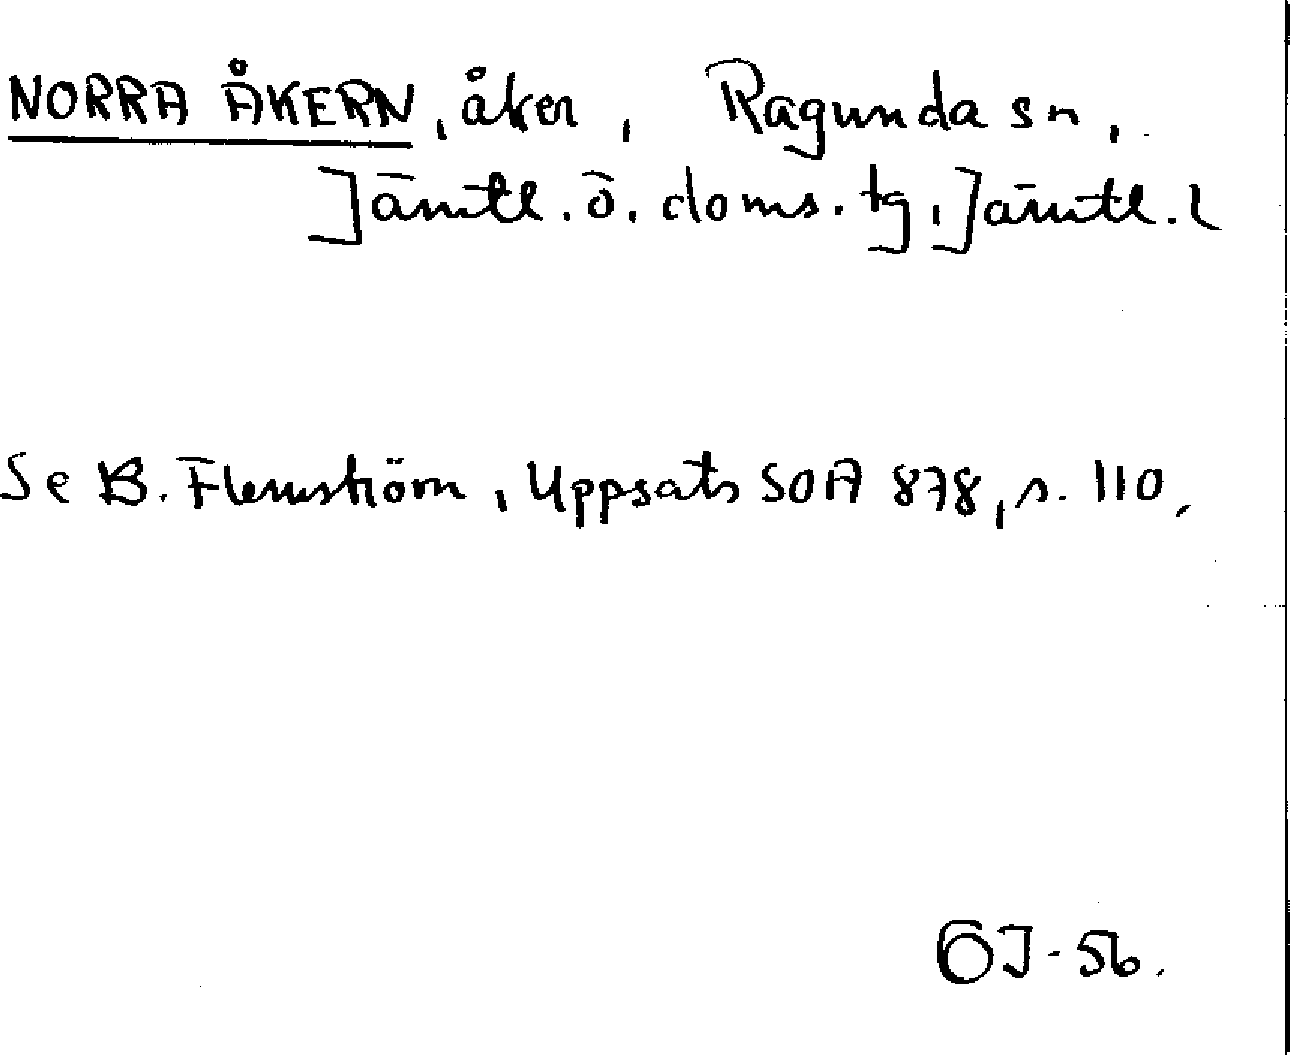 NORRA ÅKERN, åker, Ragunda sn,
Jämtl. ö. doms. tg, Jämtl. l
Se B. Flemström, Uppsats SOA 878, s. 110.
ÖJ-56.